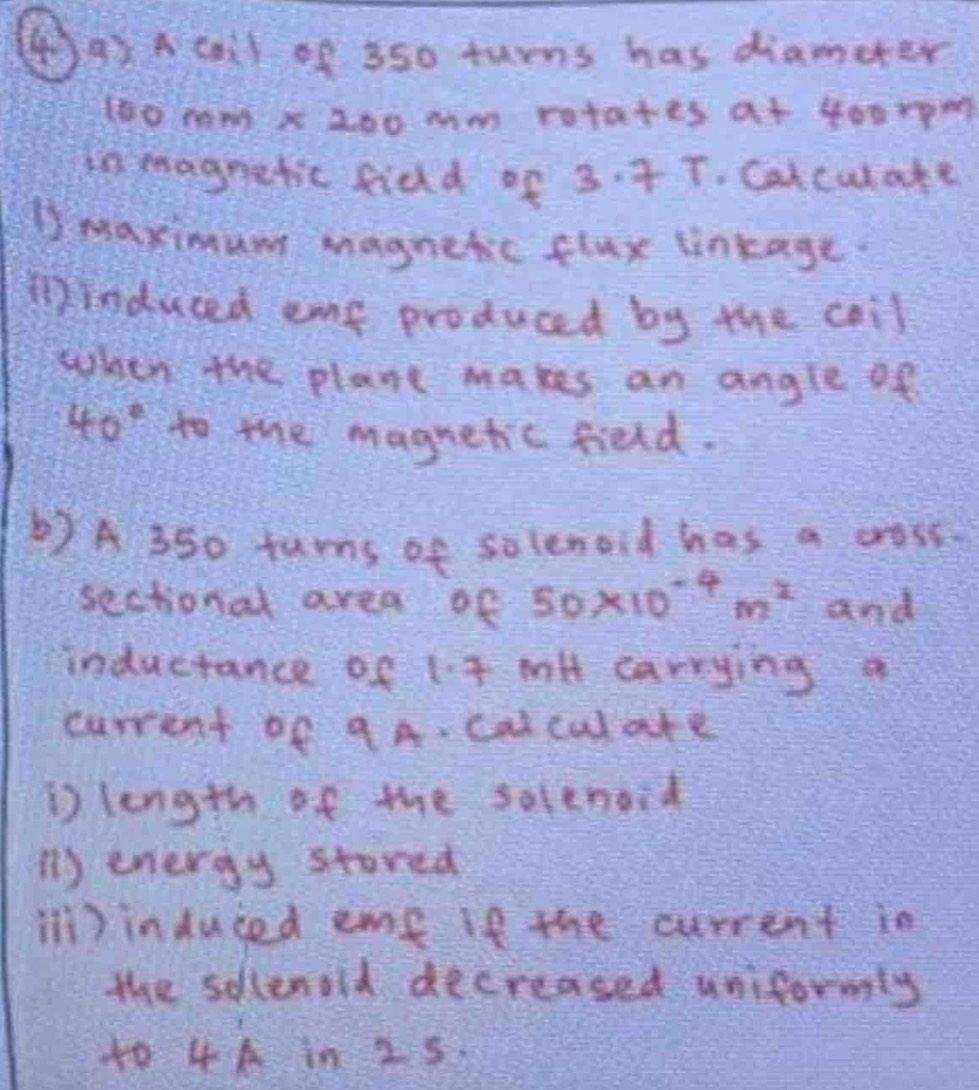 ④ a) A coil of 350 turns has diameter
100 mm x 200 mm rotates at 400 rpm
in magnetic field of 3.7 T. Calculate
i) maximum magnetic flux linkage.
ii) induced emf produced by the coil
when the plane makes an angle of
40° to the magnetic field.
b) A 350 turns of solenoid has a cross-
sectional area of 50×10⁻⁴ m² and
inductance of 1.7 mH carrying a
current of 9 A. Calculate
i) length of the solenoid
ii) energy stored
iii) induced emf if the current in
the solenoid decreased uniformly
to 4 A in 2 s.